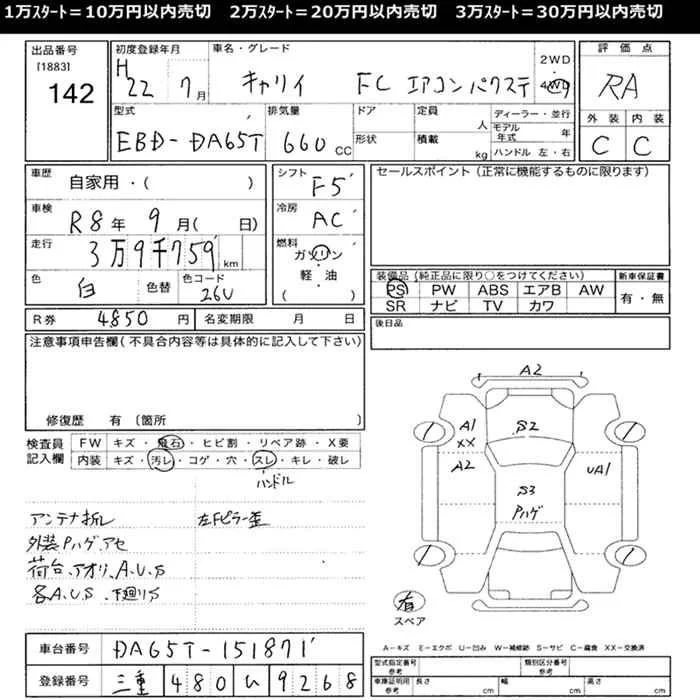 1万ｽﾀｰﾄ＝10万円以内売切　2万ｽﾀｰﾄ＝20万円以内売切　3万ｽﾀｰﾄ＝30万円以内売切
出品番号 [1883] 142
初度登録年月 H22 7月
車名・グレード キャリイ FC エアコンパワステ
2WD 4WD
評価点 RA
外装 C 内装 C
型式 EBD-DA65T
排気量 660 CC
ドア 形状
定員 人 積載 kg
ディーラー・並行
モデル年式 年
ハンドル 左・右
車歴 自家用・( )
車検 R8年 9月( 日)
走行 3万9千759 km
色 白 色替 色コード 26U
R券 4850円 名変期限 月 日
シフト F5
冷房 AC
燃料 ガソリン 軽・油 ( )
セールスポイント(正常に機能するものに限ります)
装備品(純正品に限り○をつけてください) 新車保証書
PS PW ABS エアB AW 有・無
SR ナビ TV カワ
後日品
注意事項申告欄(不具合内容等は具体的に記入して下さい)
修復歴 有 〔箇所 〕
検査員記入欄
FW キズ・飛石・ヒビ割・リペア跡・X要
内装 キズ・汚レ・コゲ・穴・スレ・キレ・破レ
ハンドル
アンテナ折レ 左Fピラー歪
外装Pハゲ、アセ
荷台、アオリ、A.U.S
各A.U.S 下廻りS
A2
A1 XX
B2
A2
UA1
S3
Pハゲ
有
スペア
A－キズ E－エクボ U－凹み W－補修跡 S－サビ C－腐食 XX－交換済
車台番号 DA65T-151871
登録番号 三重 480 い 9268
型式指定番号 参考 類別区分番号 参考
車庫証明用 参考 長さ cm 幅 cm 高さ cm